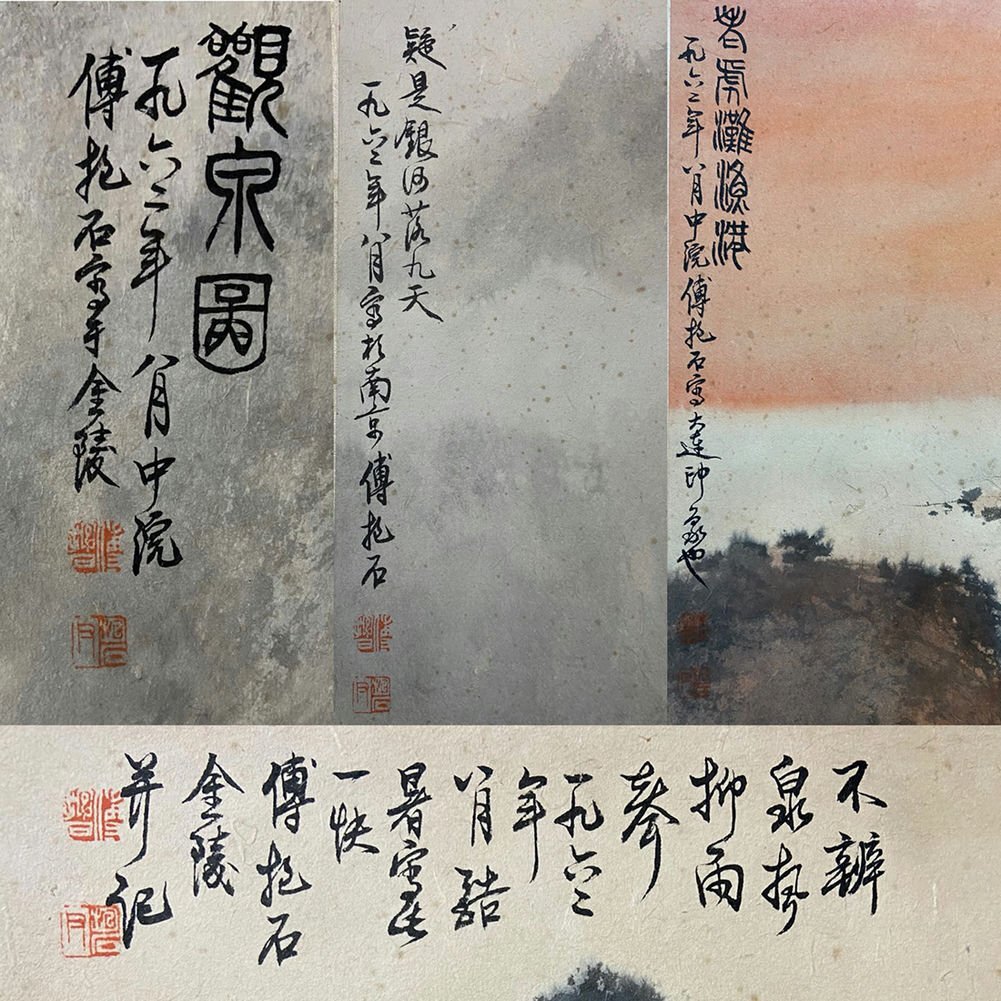 觀泉圖
一九六二年八月中浣
傅抱石寫于金陵
疑是銀河落九天
一九六二年八月寫於南京傅抱石
老虎灘漁港
一九六二年八月中浣傅抱石寫大連印象也
不辨
泉聲
抑雨
聲
一九六二
年
八月酷
暑寫此
一快
傅抱石
金陵
并記